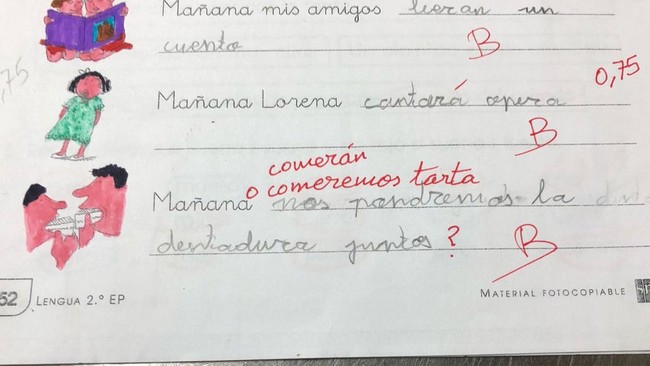 Mañana mis amigos leerán un
cuento
B
,75
0,75
Mañana Lorena cantará opera
B
comerán
o comeremos tarta
Mañana nos pondremos la
dentiadura juntos ?
B
52 LENGUA 2.º EP
MATERIAL FOTOCOPIABLE